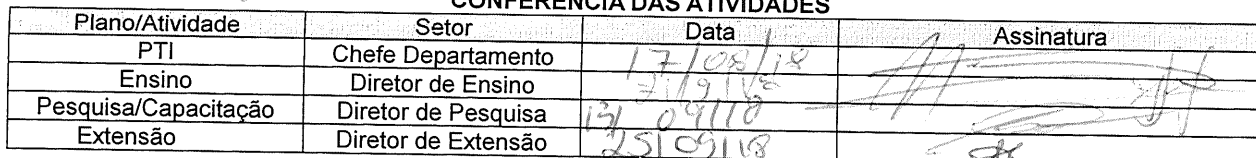 CONFERÊNCIA DAS ATIVIDADES
Plano/Atividade Setor Data Assinatura
PTI Chefe Departamento 17/08/18
Ensino Diretor de Ensino
Pesquisa/Capacitação Diretor de Pesquisa
Extensão Diretor de Extensão 25/09/18